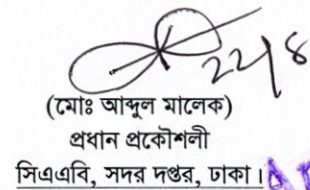 ২২/৪
(মোঃ আব্দুল মালেক)
প্রধান প্রকৌশলী
সিএএবি, সদর দপ্তর, ঢাকা।